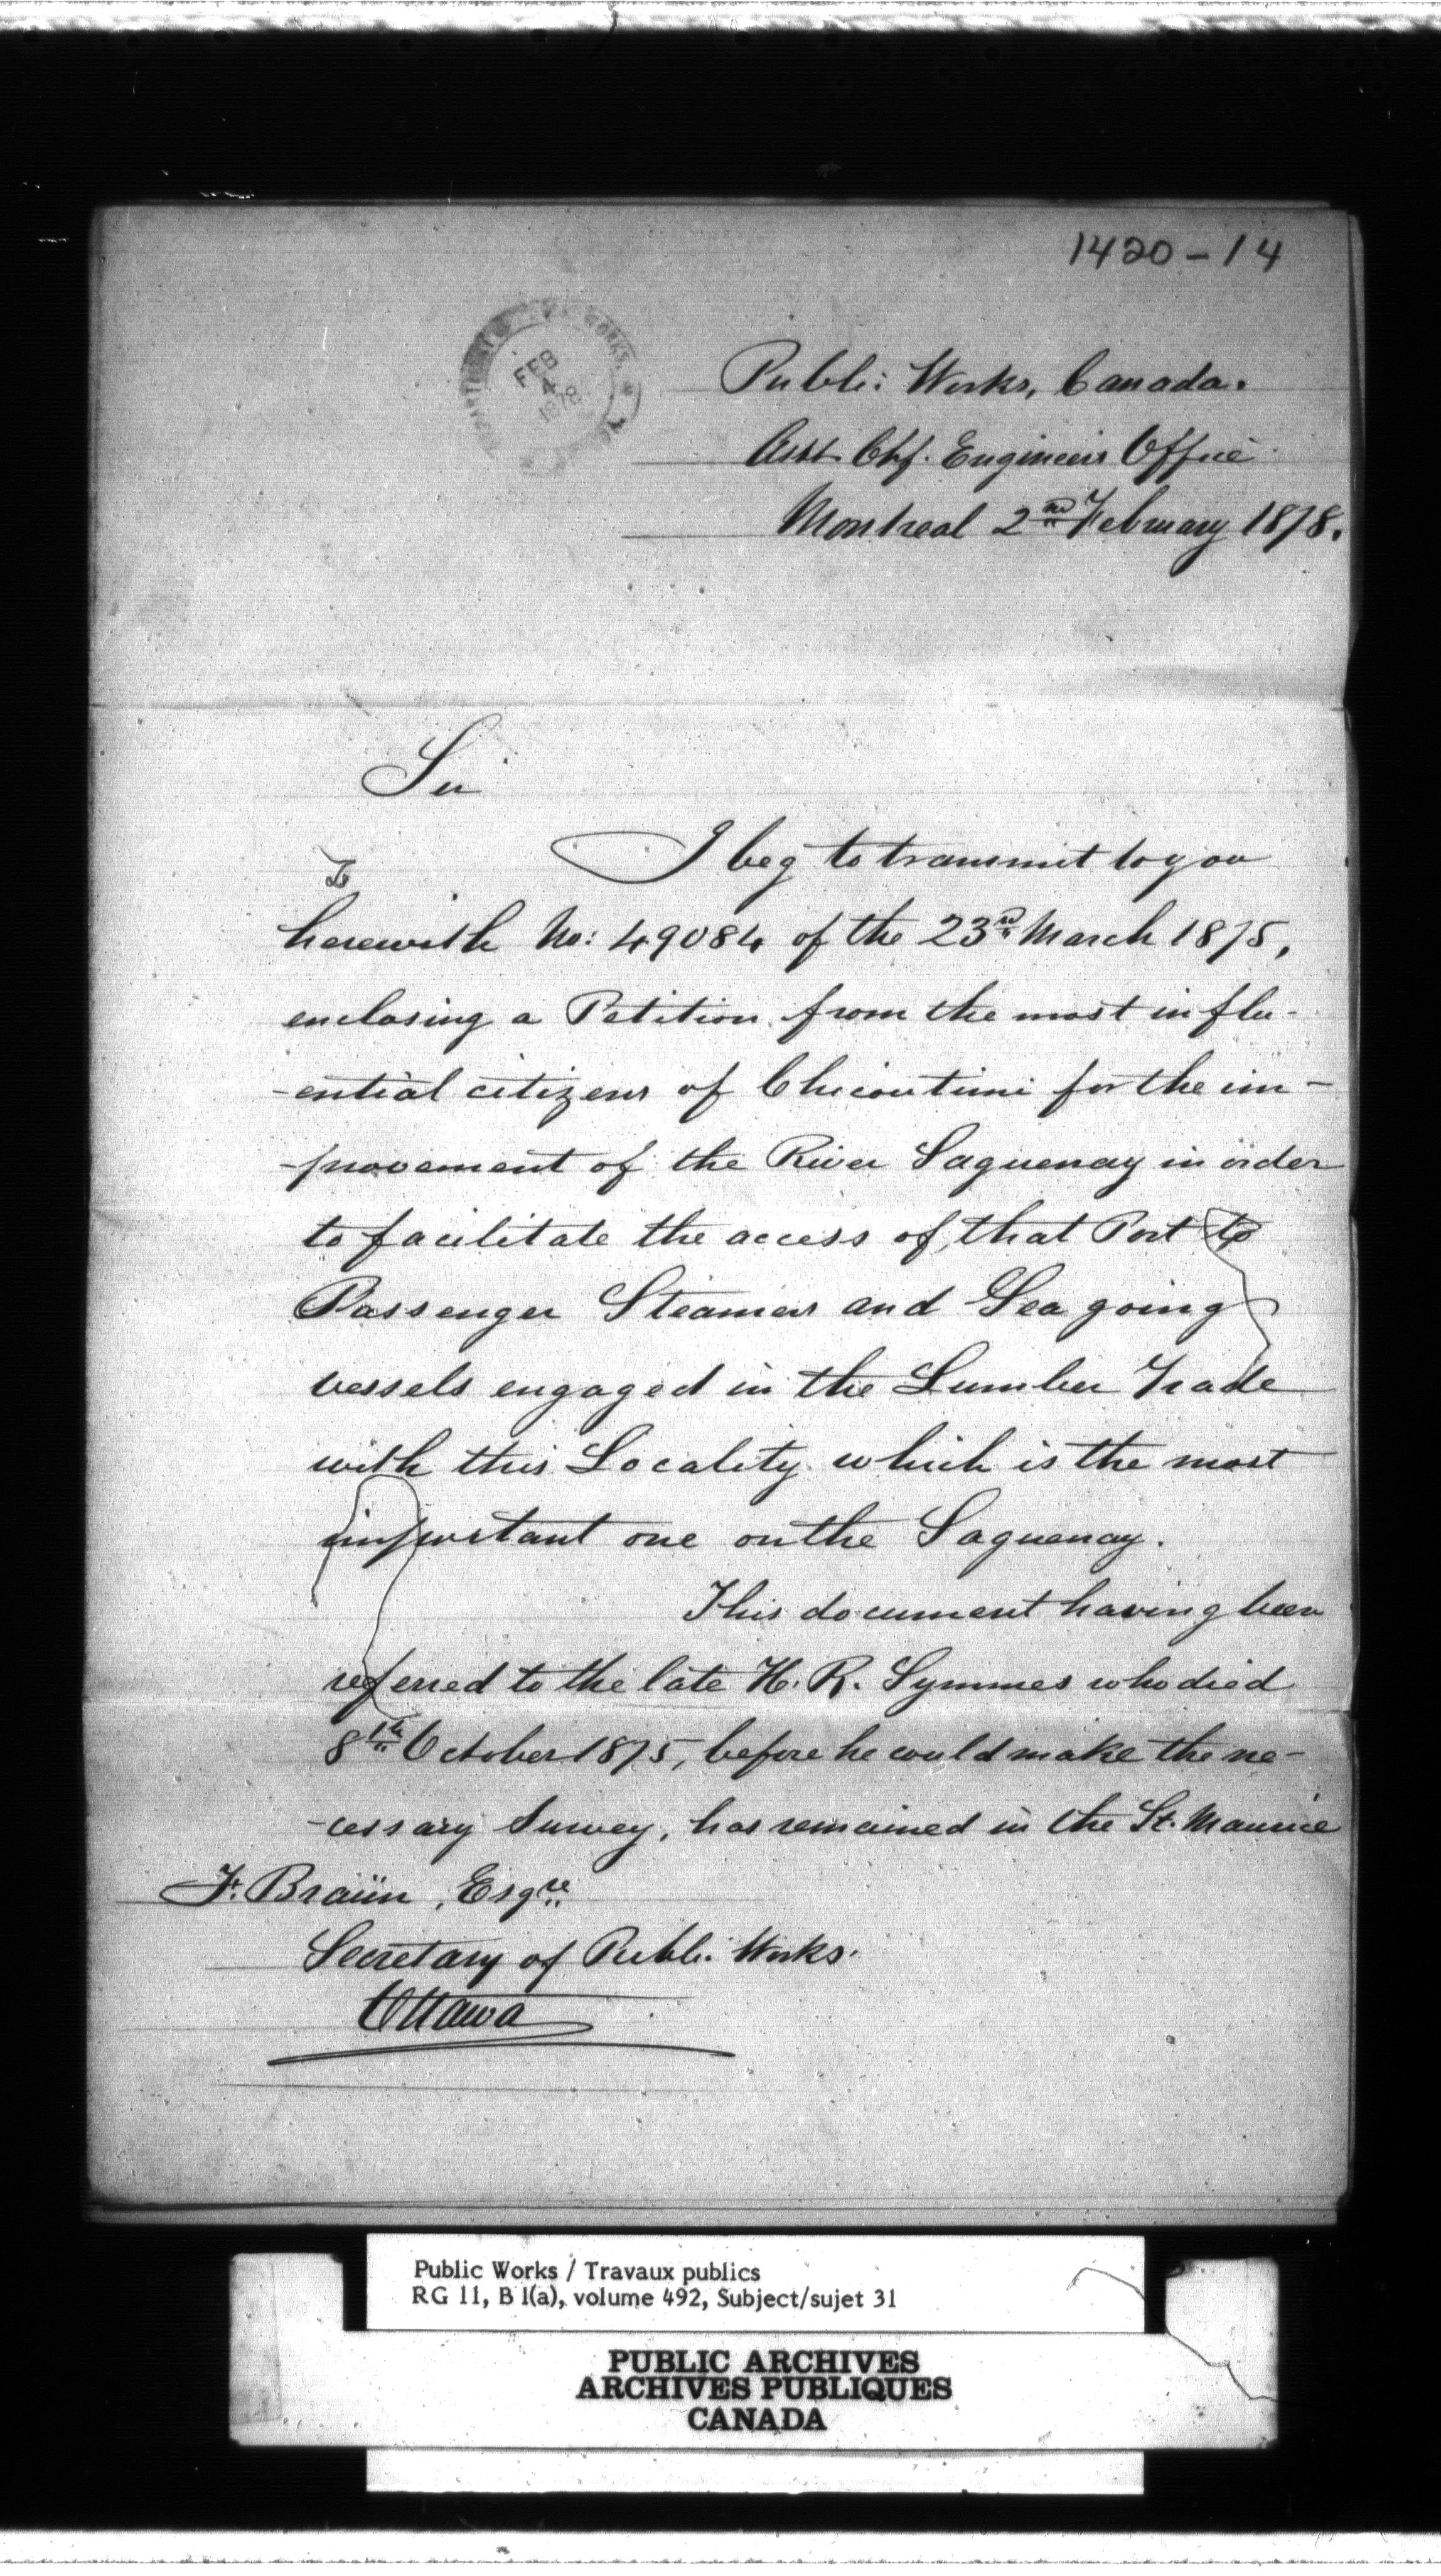 1420-14
WORKS
FEB
4
1878
Public Works, Canada.
Asst. Chf. Engineers Office
Montreal 2nd February 1878.
Sir
I beg to transmit to you
herewith No: 49084 of the 23rd March 1875,
enclosing a Petition from the most influ-
-ential citizens of Chicoutimi for the im-
-provement of the River Saguenay in order
to facilitate the access of that Port to
Passenger Steamers and Sea going
vessels engaged in the Lumber Trade
with this Locality which is the most
important one on the Saguenay.
This document having been
referred to the late H. R. Symmes who died
8th October 1875, before he could make the ne-
-cessary Survey, has remained in the St. Maurice
F. Braün, Esqre
Secretary of Public Works.
Ottawa
Public Works / Travaux publics
RG 11, B 1(a), volume 492, Subject/sujet 31
PUBLIC ARCHIVES
ARCHIVES PUBLIQUES
CANADA